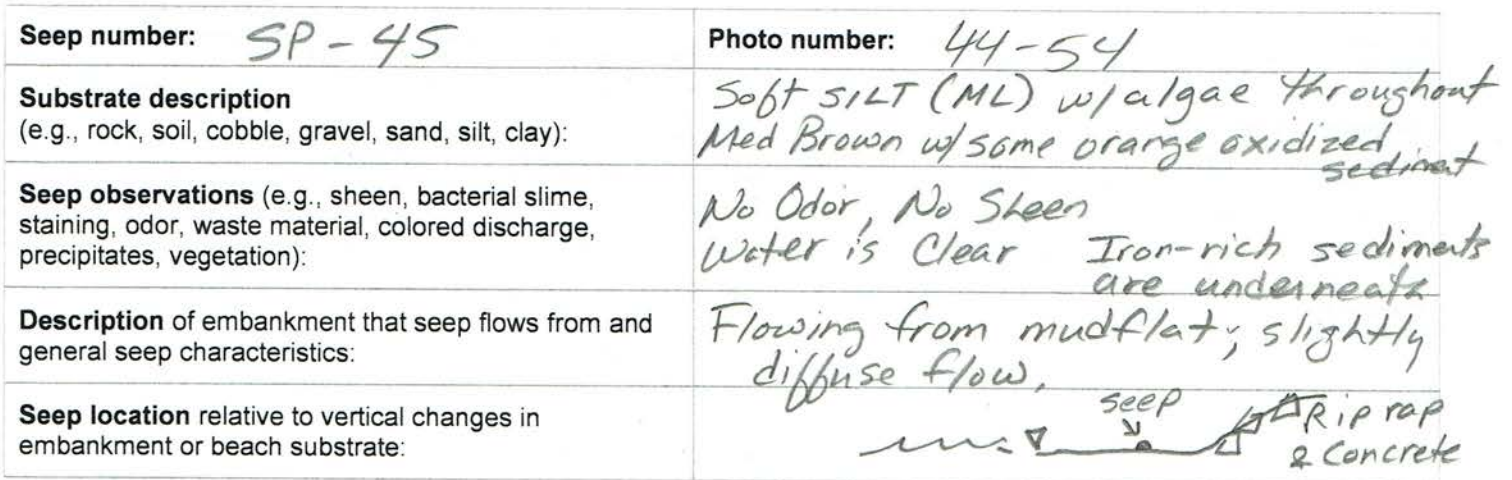 Seep number: SP-45
Photo number: 44-54
Substrate description
(e.g., rock, soil, cobble, gravel, sand, silt, clay):
Soft SILT (ML) w/ algae throughout
Med Brown w/ some orange oxidized
sediment
Seep observations (e.g., sheen, bacterial slime,
staining, odor, waste material, colored discharge,
precipitates, vegetation):
No Odor, No Sheen
Water is Clear Iron-rich sediments
are underneath
Description of embankment that seep flows from and
general seep characteristics:
Flowing from mudflat; slightly
diffuse flow.
Seep location relative to vertical changes in
embankment or beach substrate:
seep
Rip rap
& Concrete